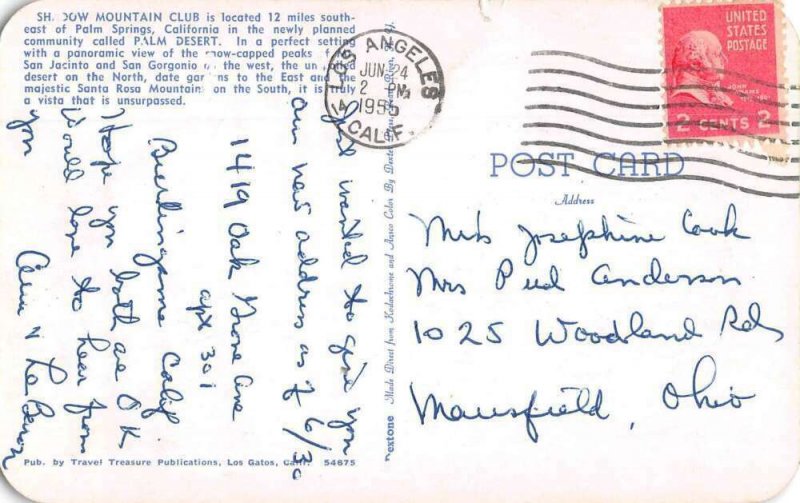 SHADOW MOUNTAIN CLUB is located 12 miles south-
east of Palm Springs, California in the newly planned
community called PALM DESERT. In a perfect setting
with a panoramic view of the snow-capped peaks
San Jacinto and San Gorgonio on the west, the
desert on the North, date gardens to the East and the
majestic Santa Rosa Mountains on the South, it is truly
a vista that is unsurpassed.
Just wanted to give you
our new address as of 6/30
1419 Oak Grove Ave
apt 301
Burlingame Calif
Hope you both are O.K.
Would love to hear from
you
&
Pub. by Travel Treasure Publications, Los Gatos, Calif. 54675
Made Direct from Kodachrome and Ansco Color By
LOS ANGELES
JUN 24
2 PM
1955
CALIF.
UNITED
STATES
POSTAGE
JOHN
ADAMS
2 CENTS 2
POST CARD
Address
Mrs Josephine Cook
Mrs Pud Anderson
1025 Woodland Rd
Mansfield, Ohio